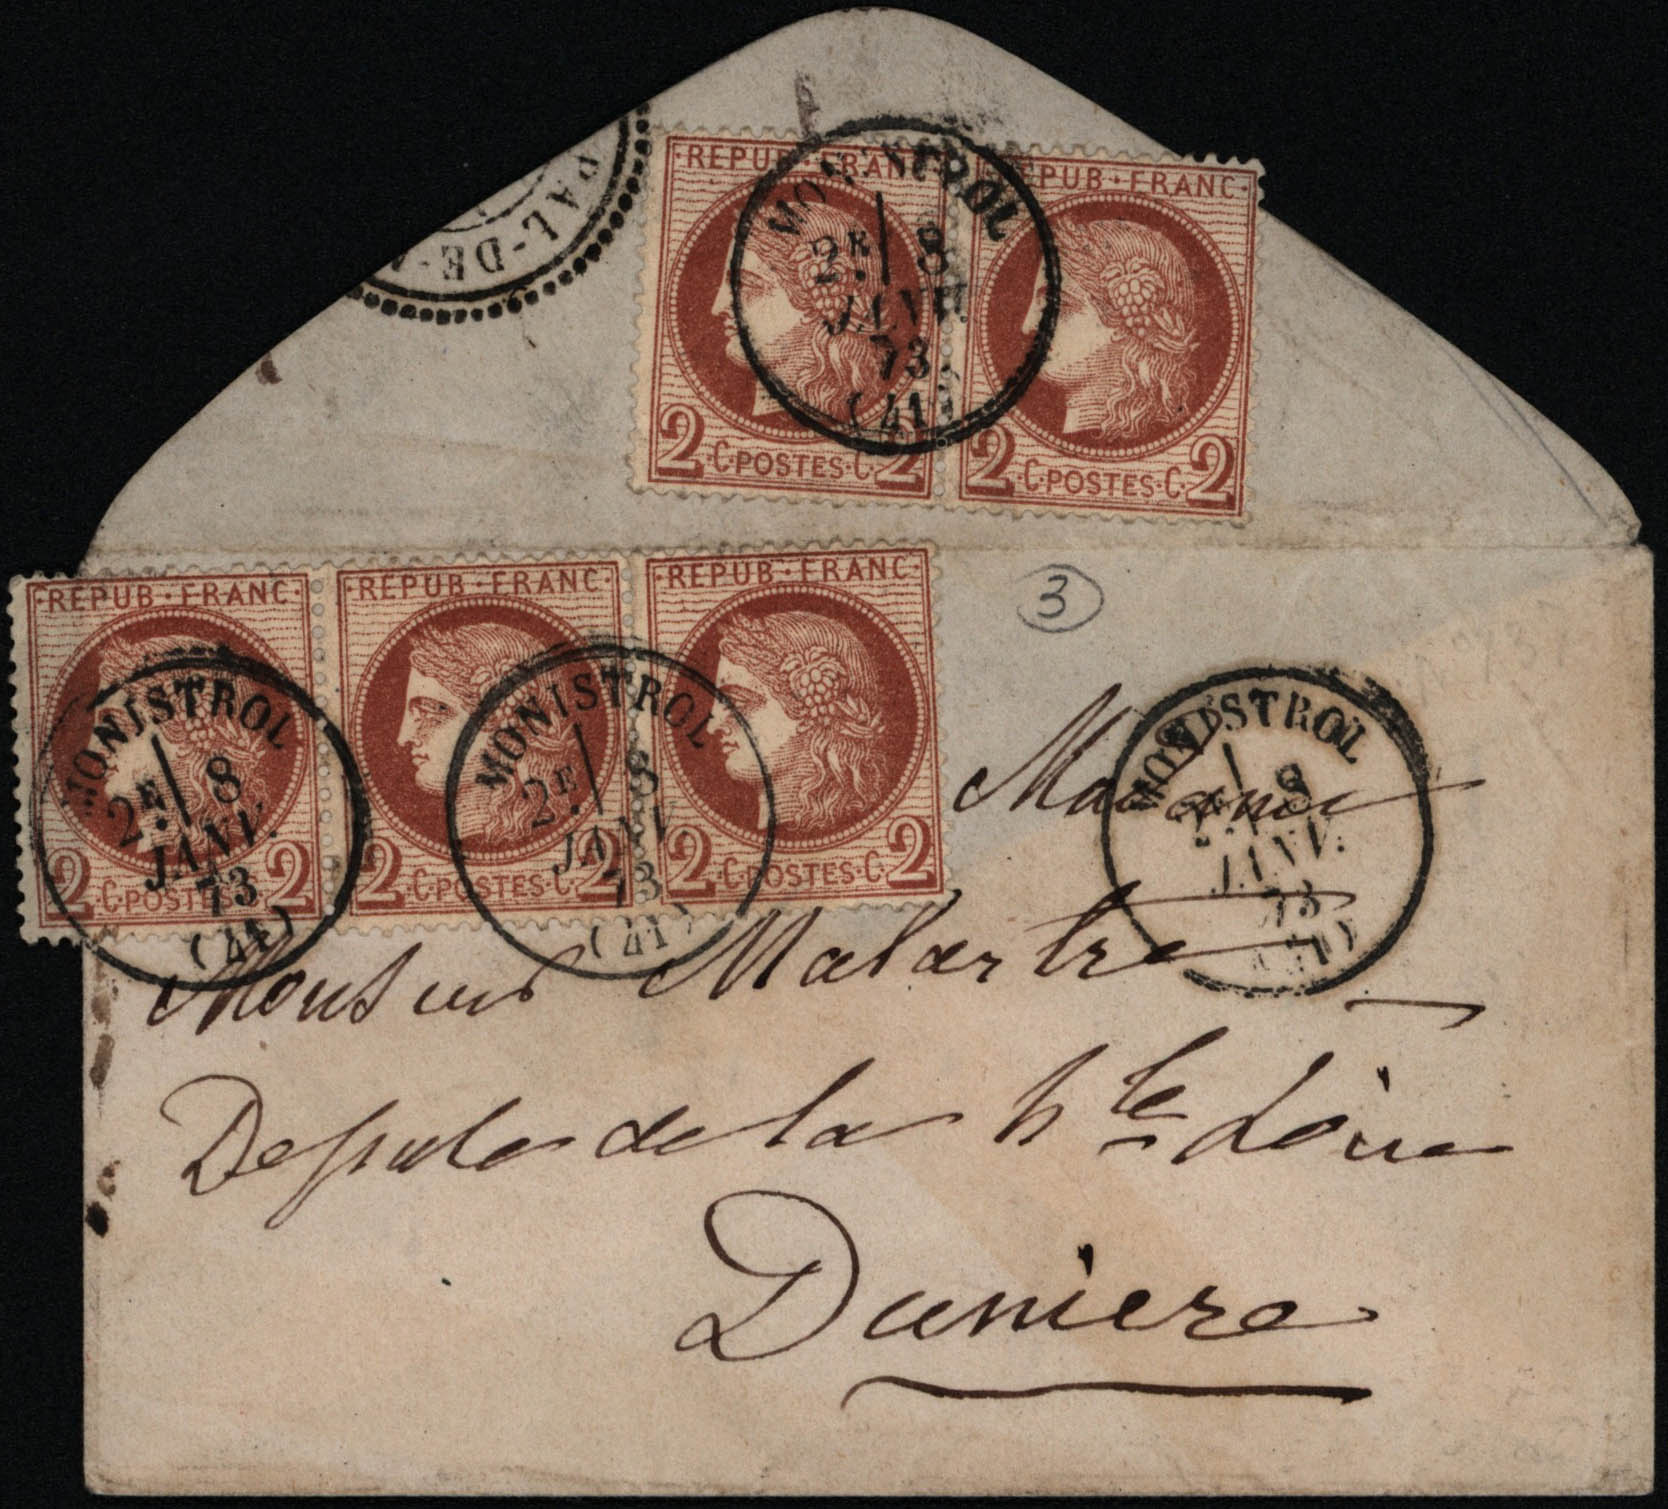 PAL-DE-
REPUB FRANC
REPUB·FRANC·
MONISTROL
2E 8
JANV.
73
(41)
2 C·POSTES·C 2
2 C·POSTES·C· 2
·REPUB·FRANC·
·REPUB·FRANC·
·REPUB·FRANC·
3
MONISTROL
2E 8
JANV.
73
(41)
MONISTROL
2E 8
JANV.
73
(41)
MONISTROL
2E 8
JANV.
73
(41)
2 C·POSTES·C 2
2 C·POSTES·C· 2
2 C·POSTES·C· 2
Madame
Monsieur Malartre
Depute de la hte Loire
Duniere